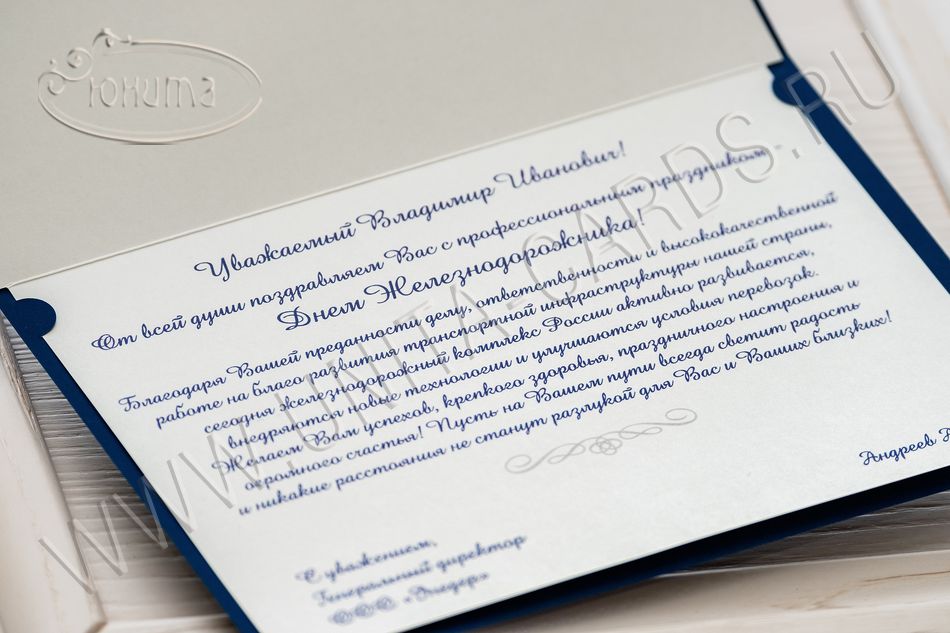 Юнита
Уважаемый Владимир Иванович!
От всей души поздравляем Вас с профессиональным праздником –
Днем Железнодорожника!
Благодаря Вашей преданности делу, ответственности и высококачественной
работе на благо развития транспортной инфраструктуры нашей страны,
сегодня железнодорожный комплекс России активно развивается,
внедряются новые технологии и улучшаются условия перевозок.
Желаем Вам успехов, крепкого здоровья, праздничного настроения и
огромного счастья! Пусть на Вашем пути всегда светит радость
и никакие расстояния не станут разлукой для Вас и Ваших близких!
Андреев
С уважением,
Генеральный директор
ООО
WWW.UNITA-CARDS.RU